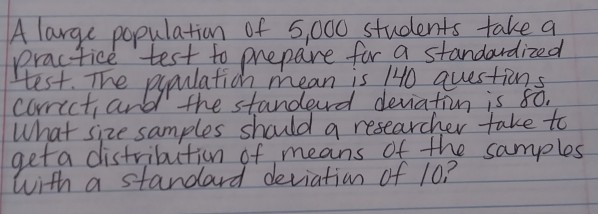 A large population of 5,000 students take a
practice test to prepare for a standardized
test. The population mean is 140 questions
correct, and the standard deviation is 80.
What size samples should a researcher take to
get a distribution of means of the samples
with a standard deviation of 10?